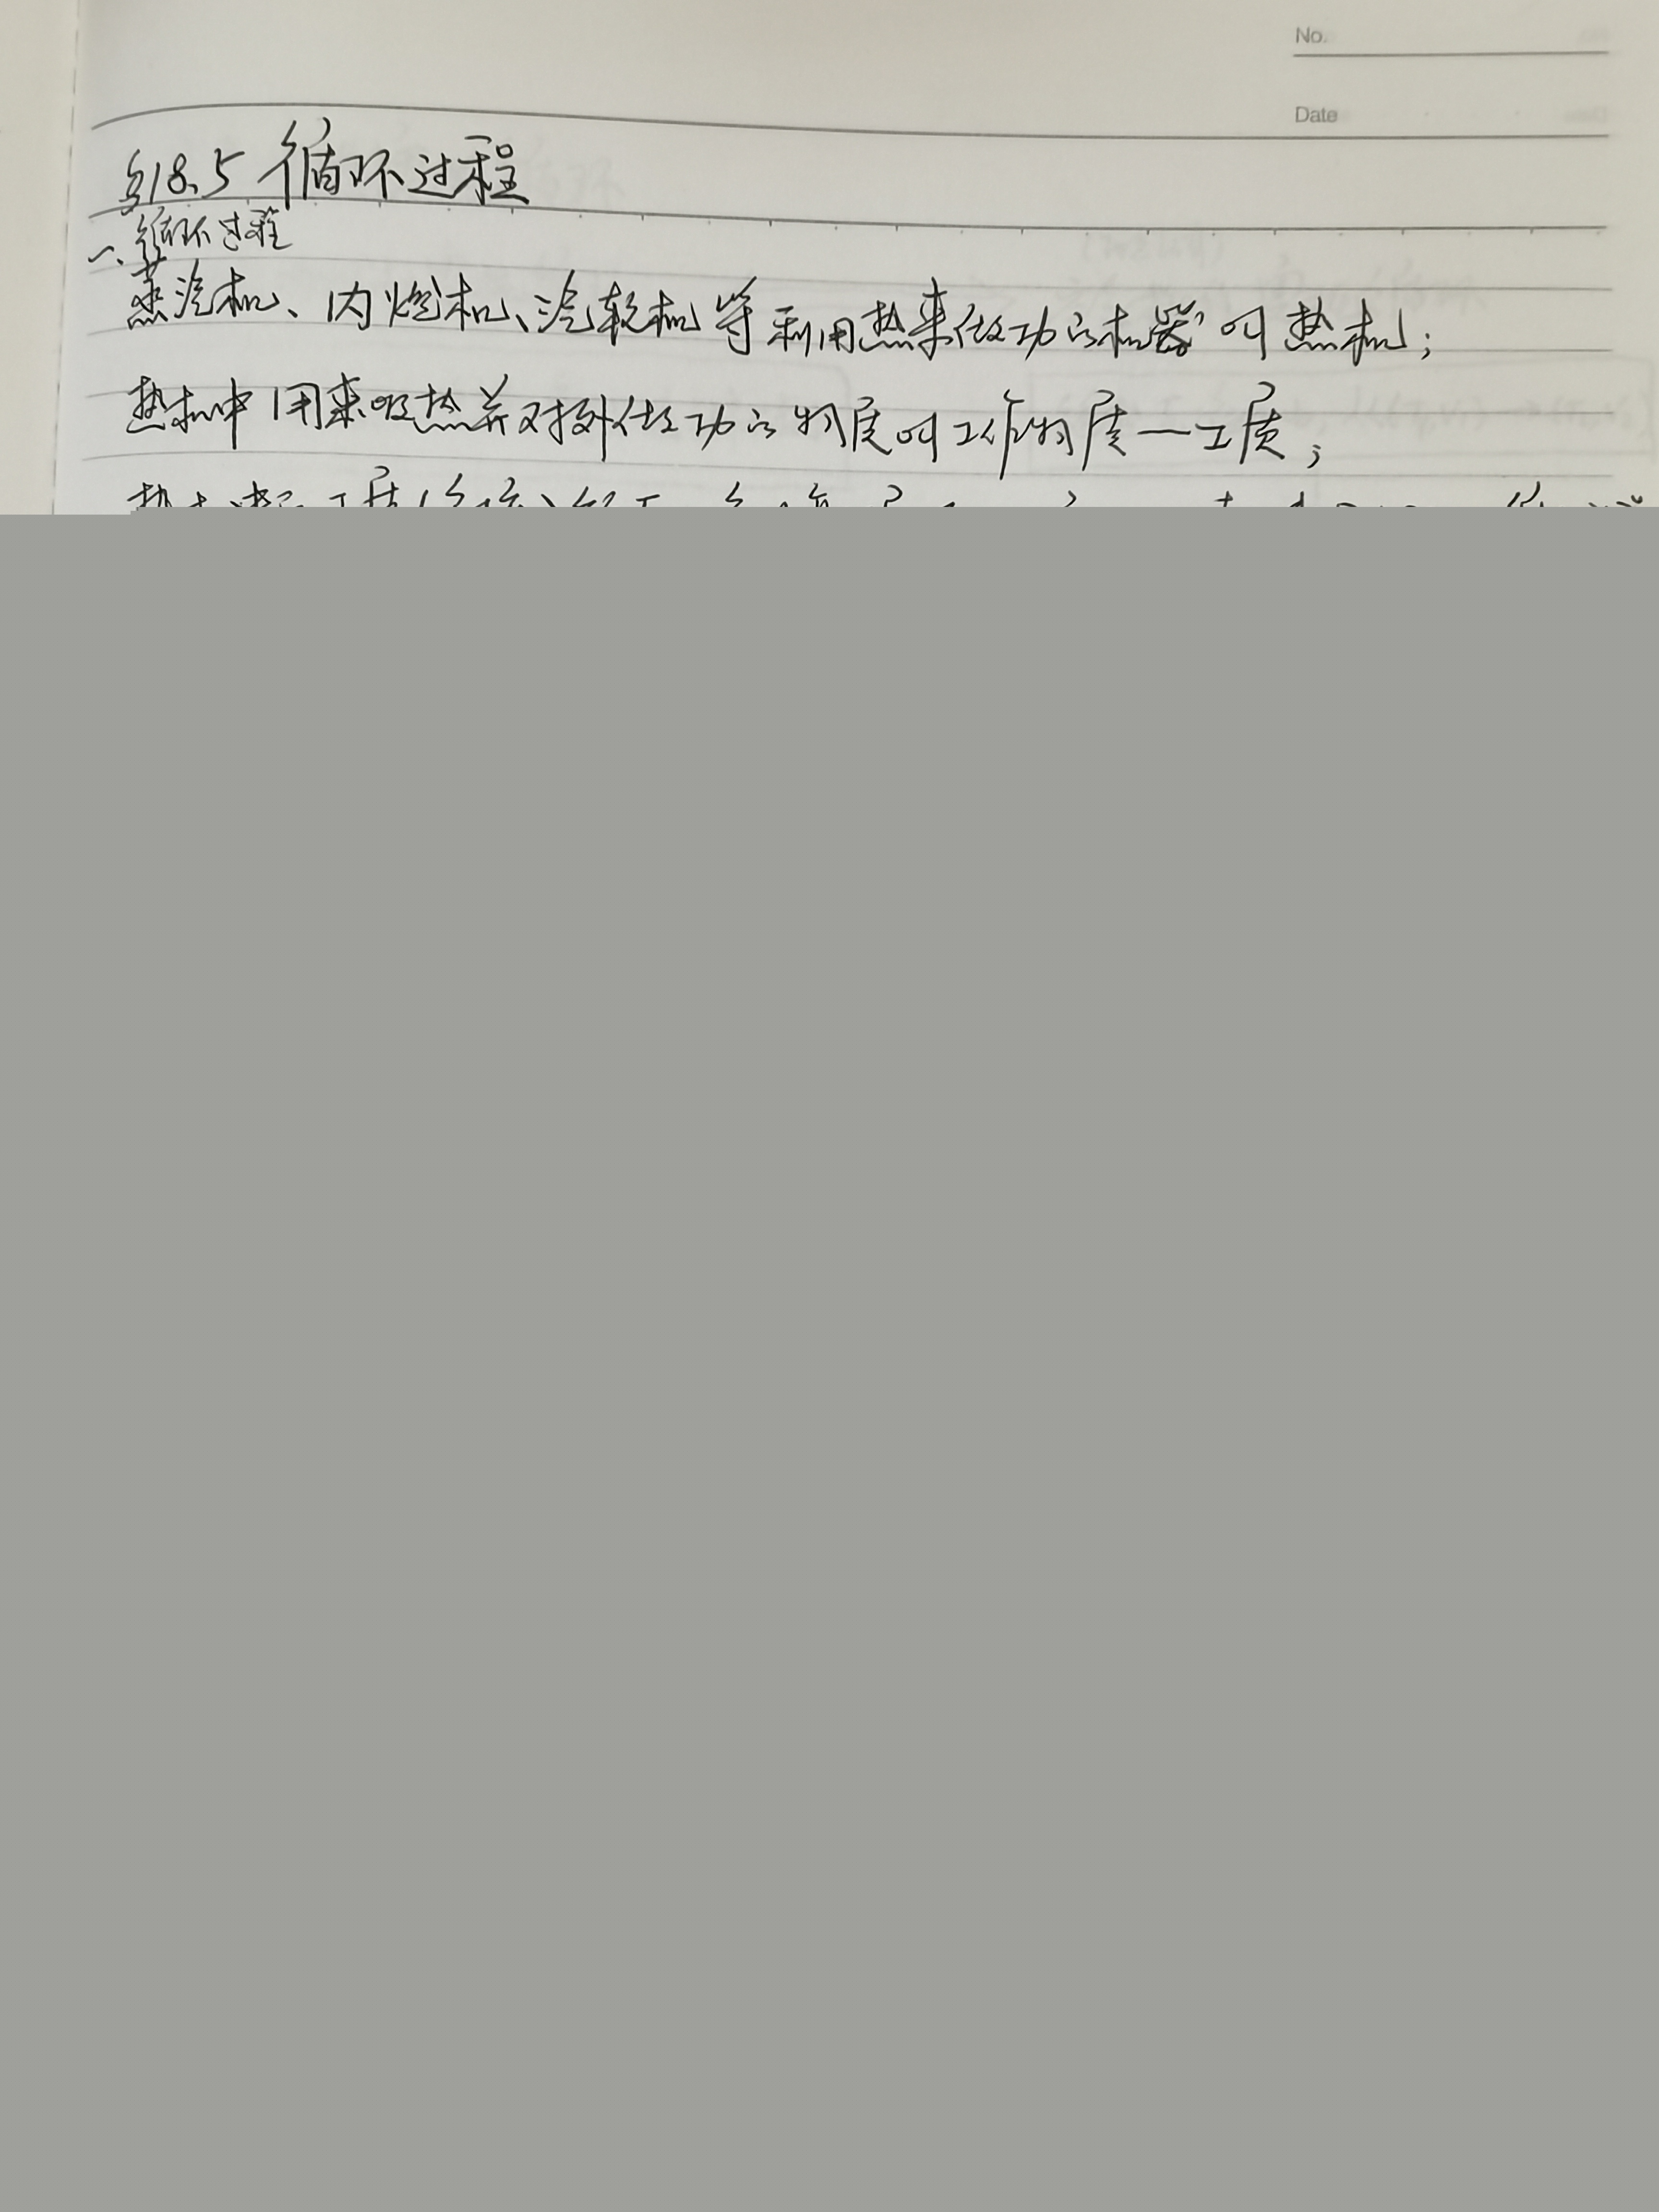 No.
Date
§18.5 循环过程
一、循环过程
蒸汽机、内燃机、汽轮机等利用热来做功的机器叫热机;
热机中用来吸热并对外做功的物质叫工作物质—工质;